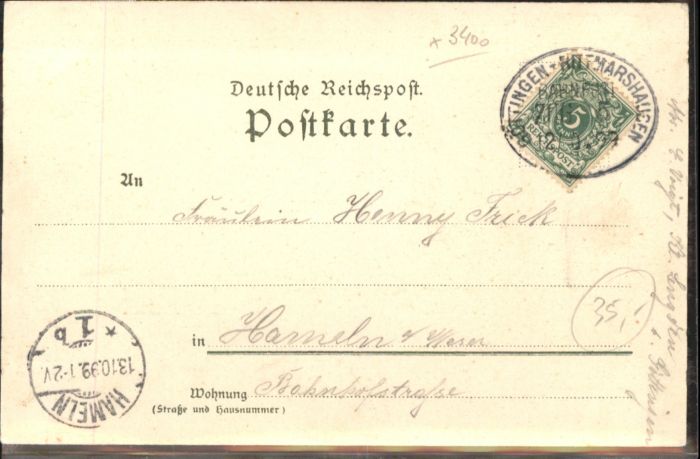 * 3400
Deutsche Reichspost.
Postkarte.
GÖTTINGEN * BUFMARSHAUSEN
BAHNPOST
ZUG
5
REICHSPOST
An
Fräulein Henny Frick
in Hameln a/ Weser
Wohnung Bahnhofstraße
(Straße und Hausnummer)
35,-
HAMELN
13.10.99. 1-2 V.
* 1b